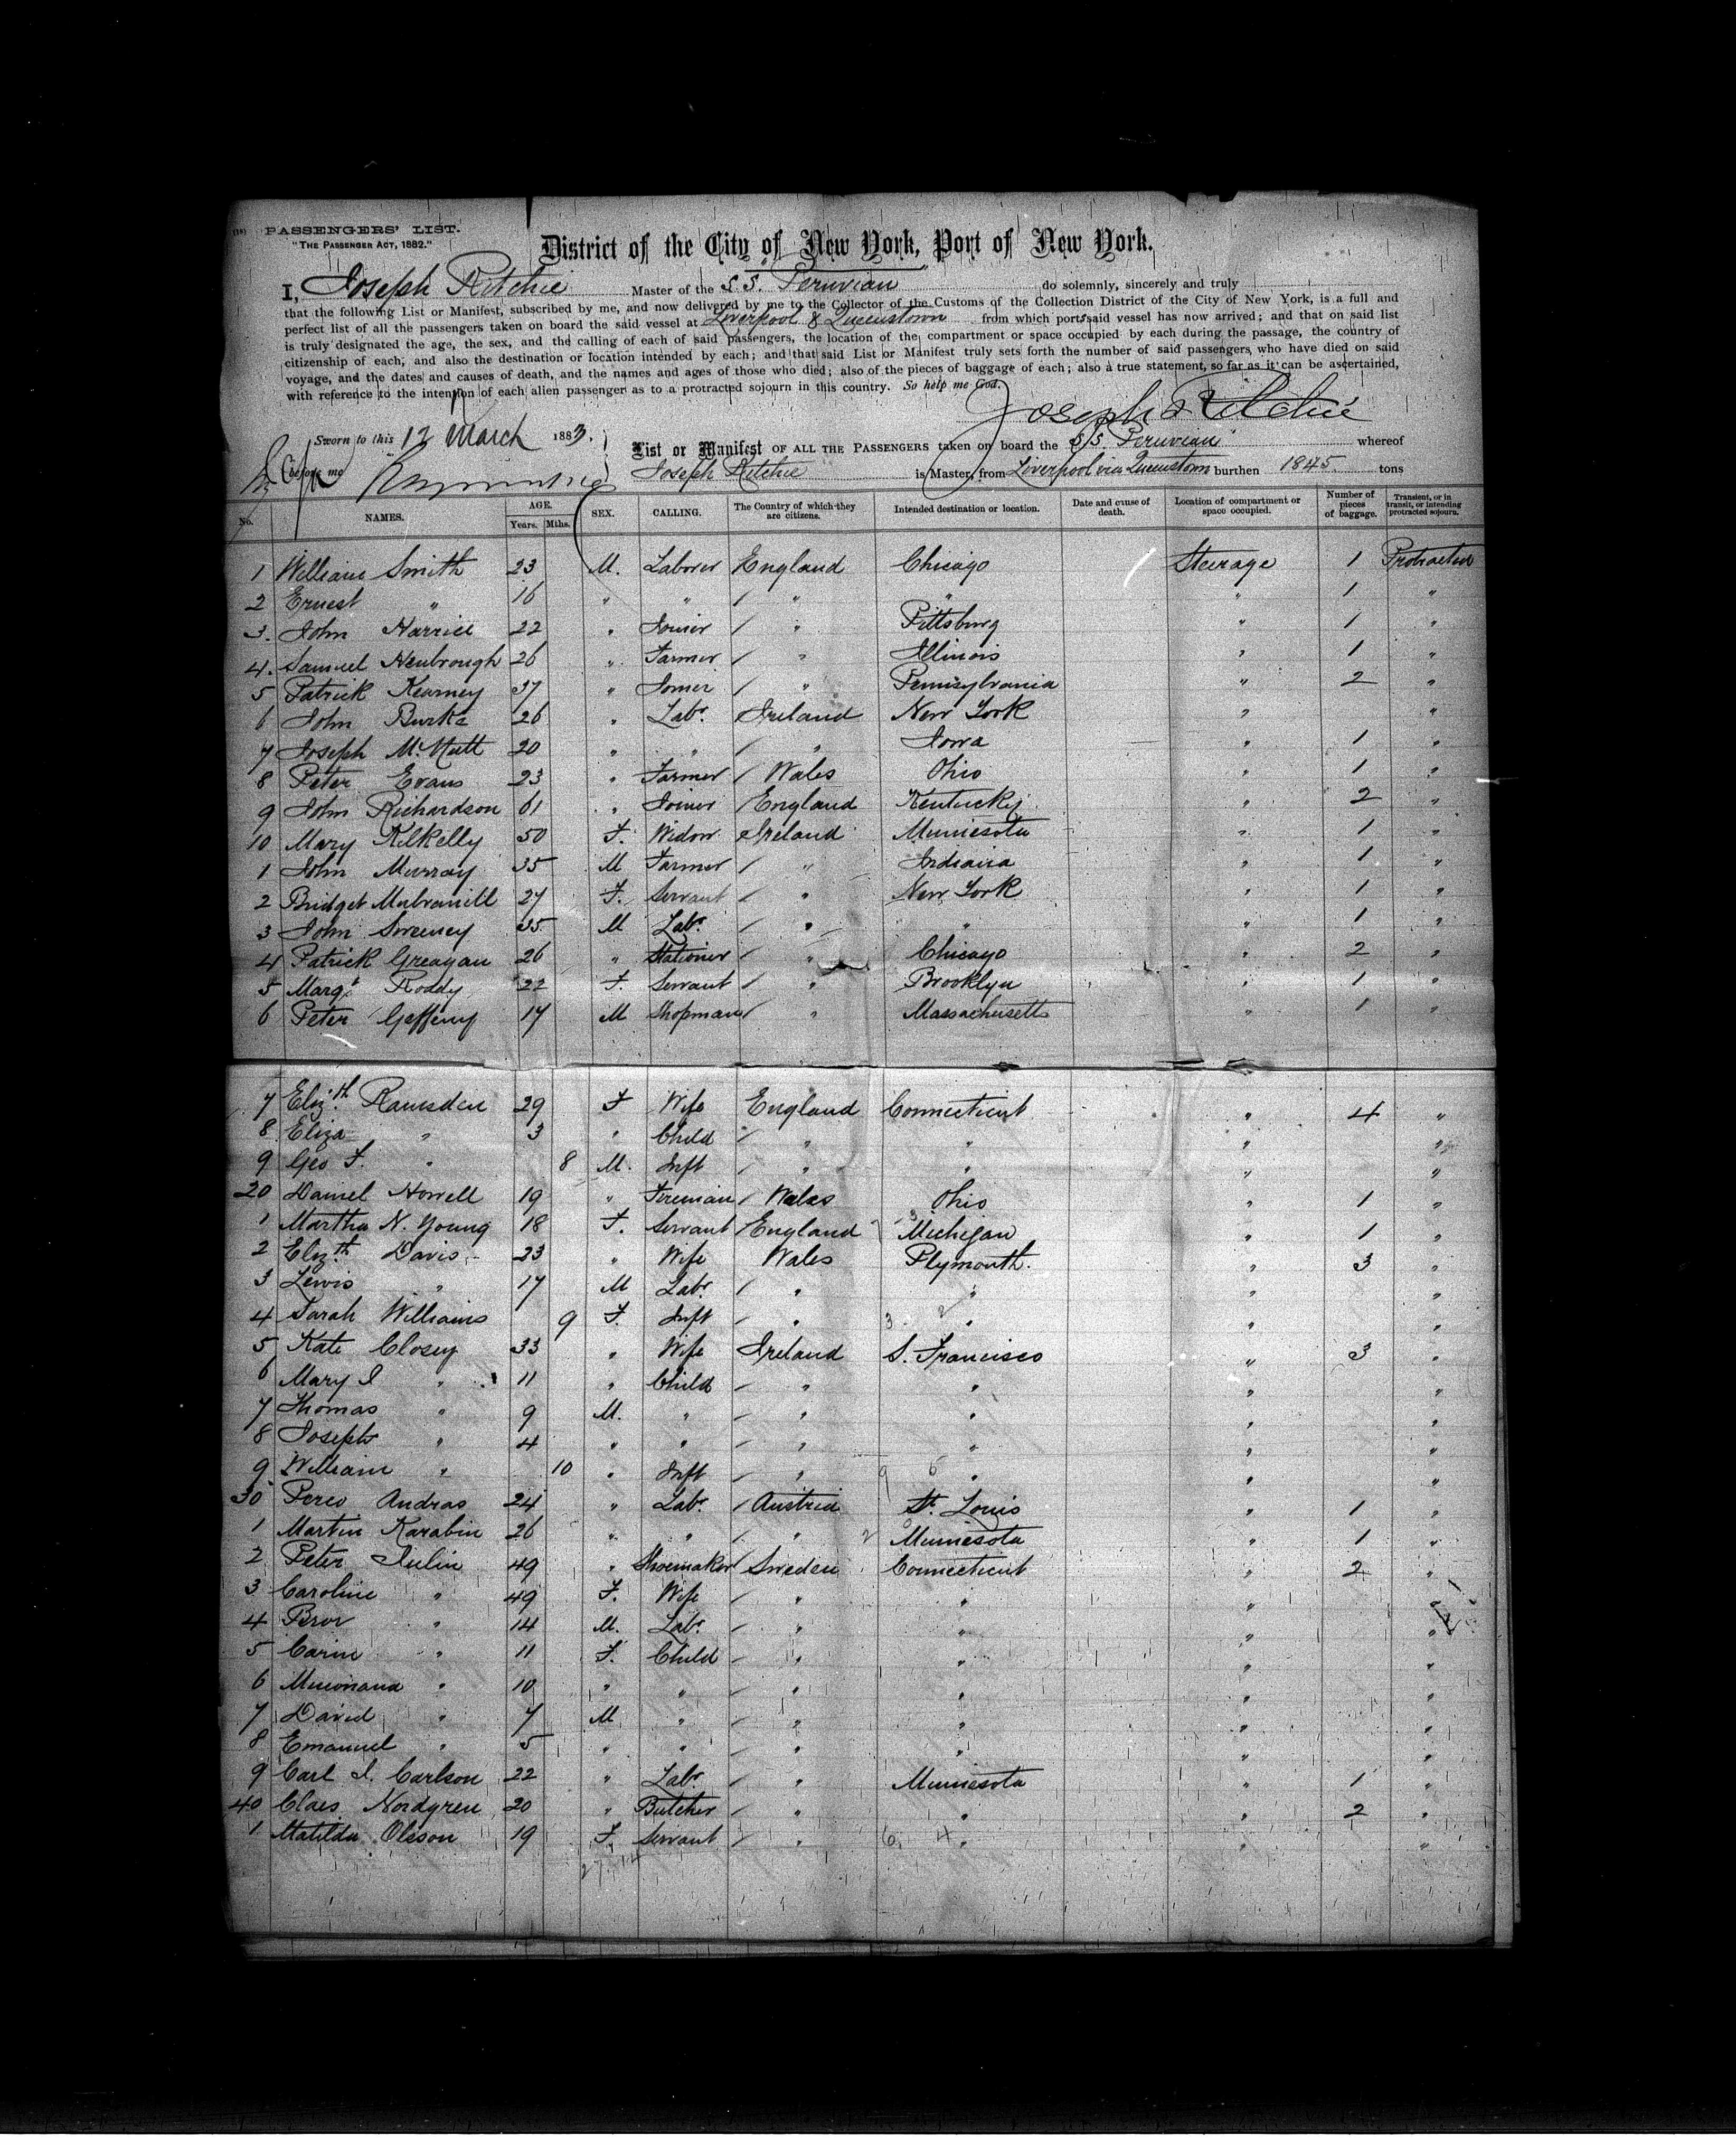 (18) PASSENGERS' LIST.
"THE PASSENGER ACT, 1882."
District of the City of New York, Port of New York.
I, Joseph Ritchie Master of the S.S. Peruvian do solemnly, sincerely and truly
that the following List or Manifest, subscribed by me, and now delivered by me to the Collector of the Customs of the Collection District of the City of New York, is a full and
perfect list of all the passengers taken on board the said vessel at Liverpool & Queenstown from which ports said vessel has now arrived; and that on said list
is truly designated the age, the sex, and the calling of each of said passengers, the location of the compartment or space occupied by each during the passage, the country of
citizenship of each, and also the destination or location intended by each; and that said List or Manifest truly sets forth the number of said passengers who have died on said
voyage, and the dates and causes of death, and the names and ages of those who died; also of the pieces of baggage of each; also a true statement, so far as it can be ascertained,
with reference to the intention of each alien passenger as to a protracted sojourn in this country. So help me God.
Joseph Ritchie
Sworn to this 12 March 1883.
before me
List or Manifest OF ALL THE PASSENGERS taken on board the S/S "Peruvian" whereof
Joseph Ritchie is Master, from Liverpool via Queenstown burthen 1845 tons
No. NAMES. AGE. Years. Mths. SEX. CALLING. The Country of which they are citizens. Intended destination or location. Date and cause of death. Location of compartment or space occupied. Number of pieces of baggage. Transient, or in transit, or intending protracted sojourn.
1 William Smith 23 M. Laborer England Chicago Steerage 1 Protracted
2 Ernest " 16 " " / " " " 1 "
3. John Harriee 22 " Joiner / " Pittsburg " 1 "
4. Samuel Newbrough 26 " Farmer / " Illinois " 1 "
5 Patrick Kearney 37 " Joiner / " Pennsylvania " 2 "
6 John Burke 26 " Labr. Ireland New York " "
7 Joseph McNutt 20 " " / " Iowa " 1 "
8 Peter Evans 23 " Farmer / Wales Ohio " 1 "
9 John Richardson 61 " Joiner / England Kentucky " 2 "
10 Mary Kilkelly 50 F. Widow Ireland Minnesota " 1 "
1 John Murray 35 M Farmer / " Indiana " 1 "
2 Bridget 27 F. Servant / " New York " 1 "
3 John Sweeney 35 M Labr. / " " " 1 "
4 Patrick Greagan 26 " Stationer / " Chicago " 2 "
5 Margt Roddy 22 F. Servant / " Brooklyn " 1 "
6 Peter Geffeny 17 M Shopman / " Massachusetts " 1 "
7 Elizth Ramsden 29 F Wife England Connecticut " 4 "
8 Eliza " 3 " Child / " " " "
9 Geo F. " 8 M. Inft / " " " "
20 Daniel Howell 19 " Fireman / Wales Ohio " 1 "
1 Martha N. Young 18 F. Servant England Michigan " 1 "
2 Elizth Davis 23 " Wife Wales Plymouth. " 3 "
3 Lewis " 17 M Labr / " " " "
4 Sarah Williams 9 F. Inft / " 3 2 " " "
5 Kate Closey 33 " Wife Ireland S. Francisco " 3 "
6 Mary J " 11 " Child / " " " "
7 Thomas " 9 M. " / " " " "
8 Joseph " 4 " " / " " " "
9 William " 10 " Inft / " 9 5 " " "
30 Andras 24 " Labr. / Austria St. Louis " 1 "
1 Martin Karabin 26 " " / " 2 Minnesota " 1 "
2 Peter Julin 49 " Shoemaker / Sweden Connecticut " 2 "
3 Caroline " 49 F. Wife / " " " "
4 Bror " 14 M. Labr. / " " " "
5 Carin " 11 F. Child / " " " "
6 " 10 " " / " " " "
7 David " 7 M " / " " " "
8 Emanuel " 5 " " / " " " "
9 Carl J. Carlson 22 " Labr. / " Minnesota " 1 "
40 Claes Nordgren 20 " Butcher / " " " 2 "
1 Matilda Olsson 19 F. Servant / " 6 4 " " "
27 14